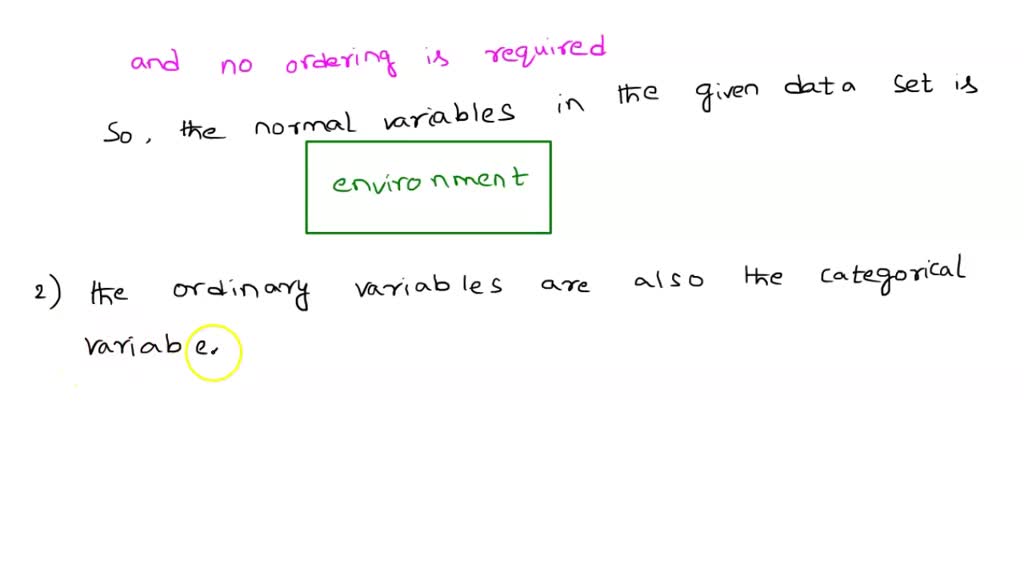 and no ordering is required
So, the normal variables in the given data set is
environment
2) the ordinary variables are also the categorical
variabe.